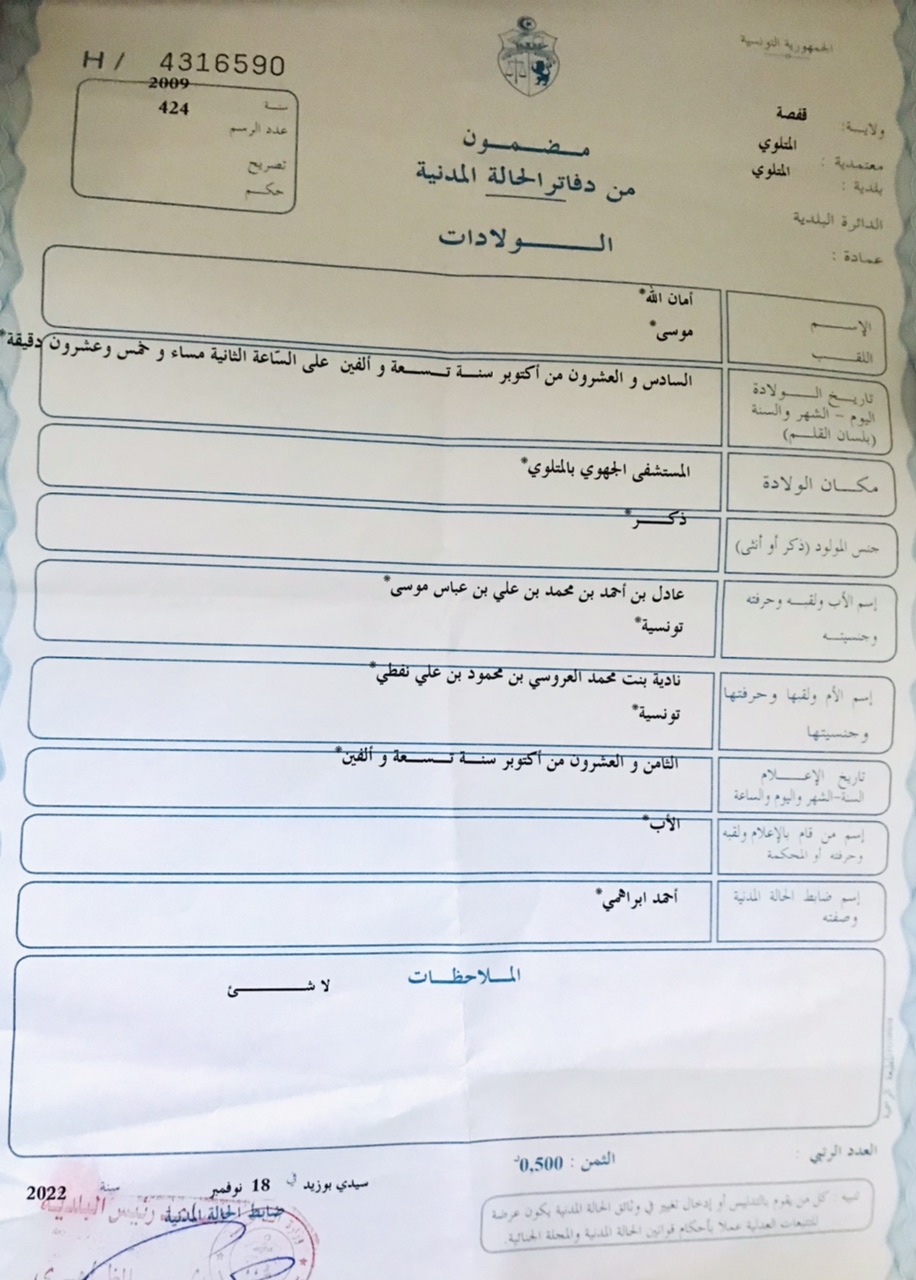 الجمهورية التونسية
H / 4316590
ولاية: قفصة
معتمدية : المتلوي
بلدية : المتلوي
الدائرة البلدية
عمادة :
سنة 2009
عدد الرسم 424
تصريح
حكم
مضمون
من دفاتر الحالة المدنية
الولادات
الإسم أمان الله*
اللقب موسى*
تاريخ الولادة السادس و العشرون من أكتوبر سنة تسعة و ألفين على الساعة الثانية مساء و خمس وعشرون دقيقة*
اليوم - الشهر والسنة
(بلسان القلم)
مكان الولادة المستشفى الجهوي بالمتلوي*
جنس المولود (ذكر أو أنثى) ذكر*
إسم الأب ولقبه وحرفته عادل بن أحمد بن محمد بن علي بن عباس موسى*
وجنسيته تونسية*
إسم الأم ولقبها وحرفتها نادية بنت محمد العروسي بن محمود بن علي نفطي*
وجنسيتها تونسية*
تاريخ الإعلام الثامن و العشرون من أكتوبر سنة تسعة و ألفين*
السنة-الشهر واليوم والساعة
إسم من قام بالإعلام ولقبه الأب*
وحرفته أو المحكمة
إسم ضابط الحالة المدنية أحمد ابراهمي*
وصفته
الملاحظات
لا شئ
العدد الرتبي :
الثمن : 0,500د
تنبيه : كل من يقوم بالتدليس أو إدخال تغيير في وثائق الحالة المدنية يكون عرضة
للتتبعات العدلية عملا بأحكام قوانين الحالة المدنية والمجلة الجنائية.
سيدي بوزيد في 18 نوفمبر سنة 2022
ضابط الحالة المدنية
رئيس البلدية